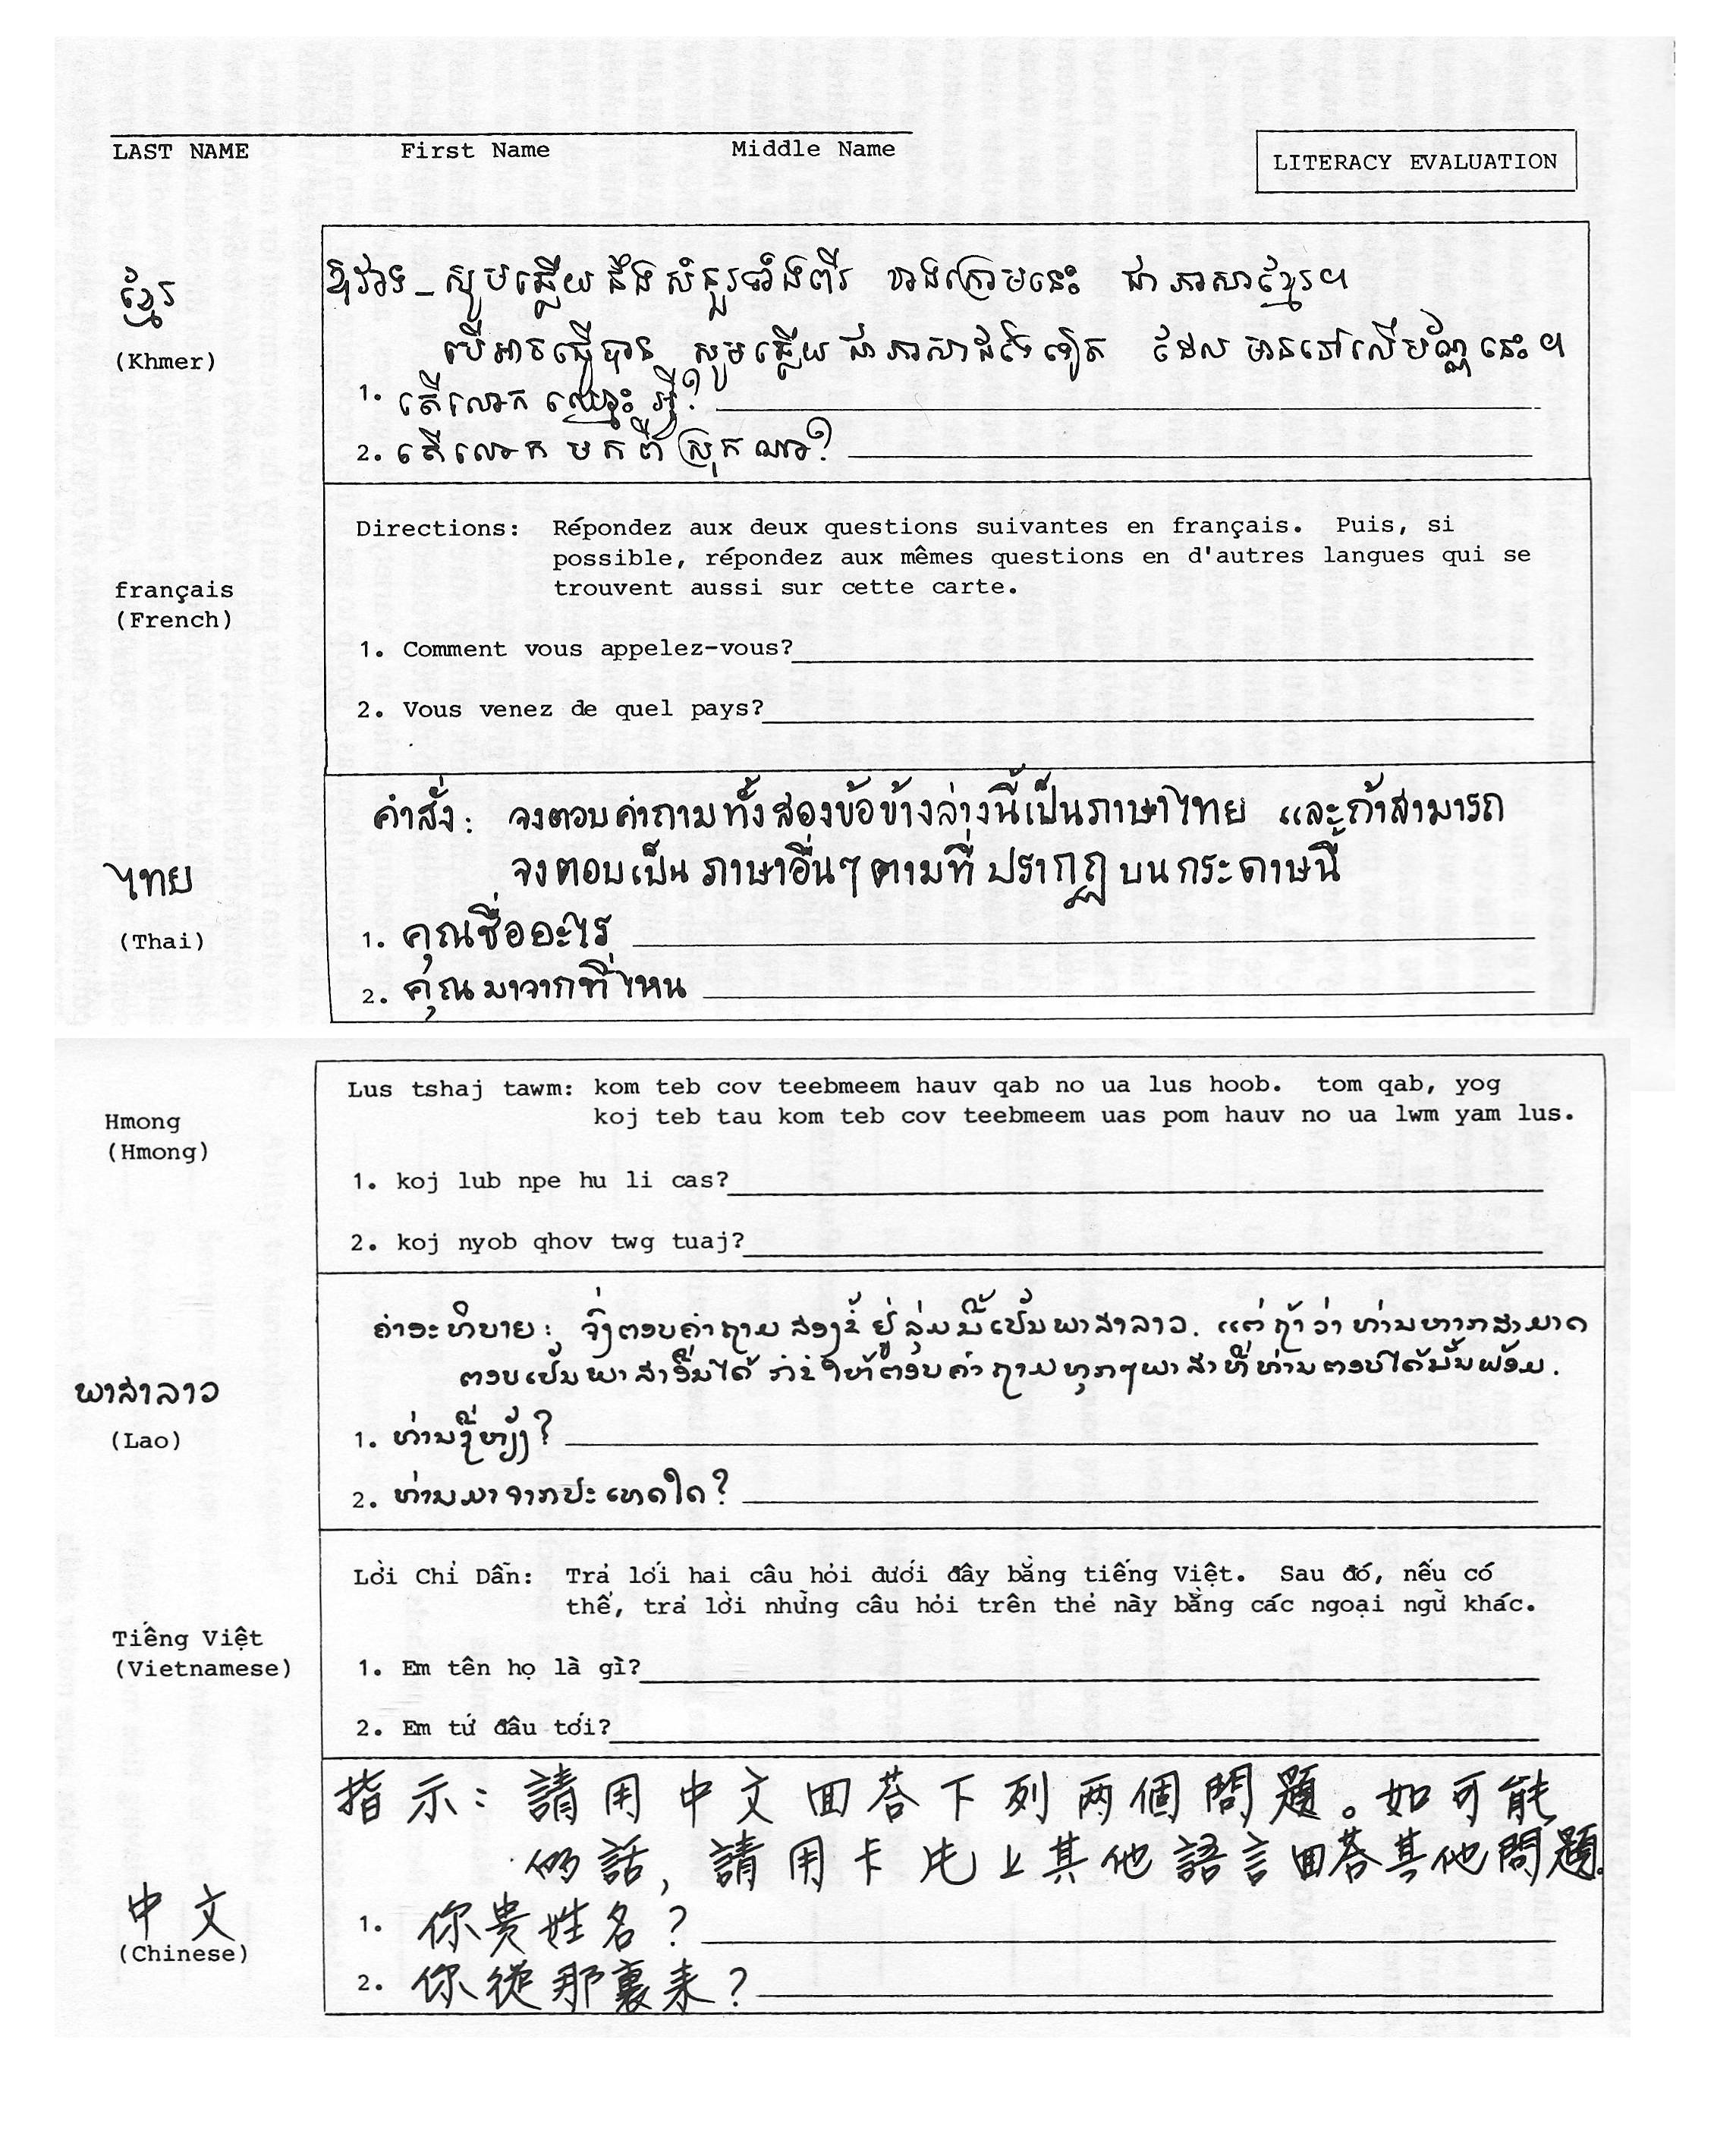 LAST NAME First Name Middle Name
LITERACY EVALUATION
ខ្មែរ
(Khmer)
ឱវាទ - សូមឆ្លើយនឹងសំនួរទាំងពីរ ខាងក្រោមនេះ ជាភាសាខ្មែរ។
បើអាចធ្វើបាន សូមឆ្លើយជាភាសាដទៃទៀត ដែលមាននៅលើប័ណ្ណនេះ។
1. តើលោកឈ្មោះអ្វី?
2. តើលោកមកពីស្រុកណា?
français
(French)
Directions: Répondez aux deux questions suivantes en français. Puis, si
possible, répondez aux mêmes questions en d'autres langues qui se
trouvent aussi sur cette carte.
1. Comment vous appelez-vous?
2. Vous venez de quel pays?
ไทย
(Thai)
คำสั่ง: จงตอบคำถามทั้งสองข้อข้างล่างนี้เป็นภาษาไทย และถ้าสามารถ
จงตอบเป็นภาษาอื่นๆตามที่ปรากฏบนกระดาษนี้
1. คุณชื่ออะไร
2. คุณมาจากที่ไหน
Hmong
(Hmong)
Lus tshaj tawm: kom teb cov teebmeem hauv qab no ua lus hoob. tom qab, yog
koj teb tau kom teb cov teebmeem uas pom hauv no ua lwm yam lus.
1. koj lub npe hu li cas?
2. koj nyob qhov twg tuaj?
ພາສາລາວ
(Lao)
ຄຳອະທິບາຍ: ຈົ່ງຕອບຄຳຖາມສອງຂໍ້ຢູ່ລຸ່ມນີ້ເປັນພາສາລາວ. ແຕ່ຖ້າວ່າທ່ານຫາກສາມາດ
ຕອບເປັນພາສາອື່ນໄດ້ ກໍຂໍໃຫ້ຕອບຄຳຖາມທຸກໆພາສາທີ່ທ່ານຕອບໄດ້ນັ້ນພ້ອມ.
1. ທ່ານຊື່ຫຍັງ?
2. ທ່ານມາຈາກປະເທດໃດ?
Tiếng Việt
(Vietnamese)
Lời Chỉ Dẫn: Trả lới hai câu hỏi dưới đây bằng tiếng Việt. Sau đó, nếu có
thể, trả lời những câu hỏi trên thẻ này bằng các ngoại ngữ khác.
1. Em tên họ là gì?
2. Em từ đâu tới?
中文
(Chinese)
指示：請用中文回答下列两個問題。如可能
的話，請用卡片上其他語言回答其他問題。
1. 你贵姓名？
2. 你從那裏来？